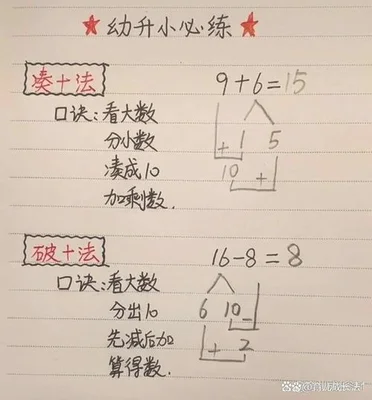 ★幼升小必练★
凑十法
9+6=15
口诀:看大数
分小数
+ 1 5
凑成10
10 +
加剩数.
破十法
16-8=8
口诀:看大数
分出10
6 10 -
先减后加
+ 2
算得数.